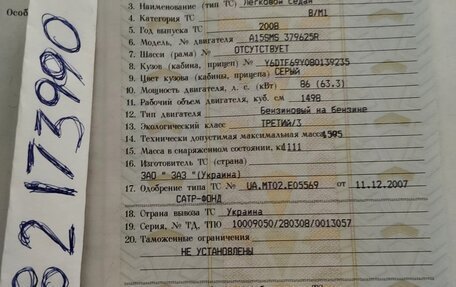 Особ
3. Наименование (тип ТС) Легковой седан
4. Категория ТС В/М1
5. Год выпуска ТС 2008
6. Модель, № двигателя A15SMS 379625R
7. Шасси (рама) № ОТСУТСТВУЕТ
8. Кузов (кабина, прицеп) № Y6DTF69Y080139235
9. Цвет кузова (кабины, прицепа) СЕРЫЙ
10. Мощность двигателя, л. с. (кВт) 86 (63.3)
11. Рабочий объем двигателя, куб. см 1498
12. Тип двигателя Бензиновый на бензине
13. Экологический класс ТРЕТИЙ/3
14. Технически допустимая максимальная масса 1595
15. Масса в снаряженном состоянии, кг 1111
16. Изготовитель ТС (страна)
ЗАО " ЗАЗ "(Украина)
17. Одобрение типа ТС № UA.MT02.E05569 от 11.12.2007
САТР-ФОНД
18. Страна вывоза ТС Украина
19. Серия, № ТД, ТПО 10009050/280308/0013057
20. Таможенные ограничения
НЕ УСТАНОВЛЕНЫ
82173990